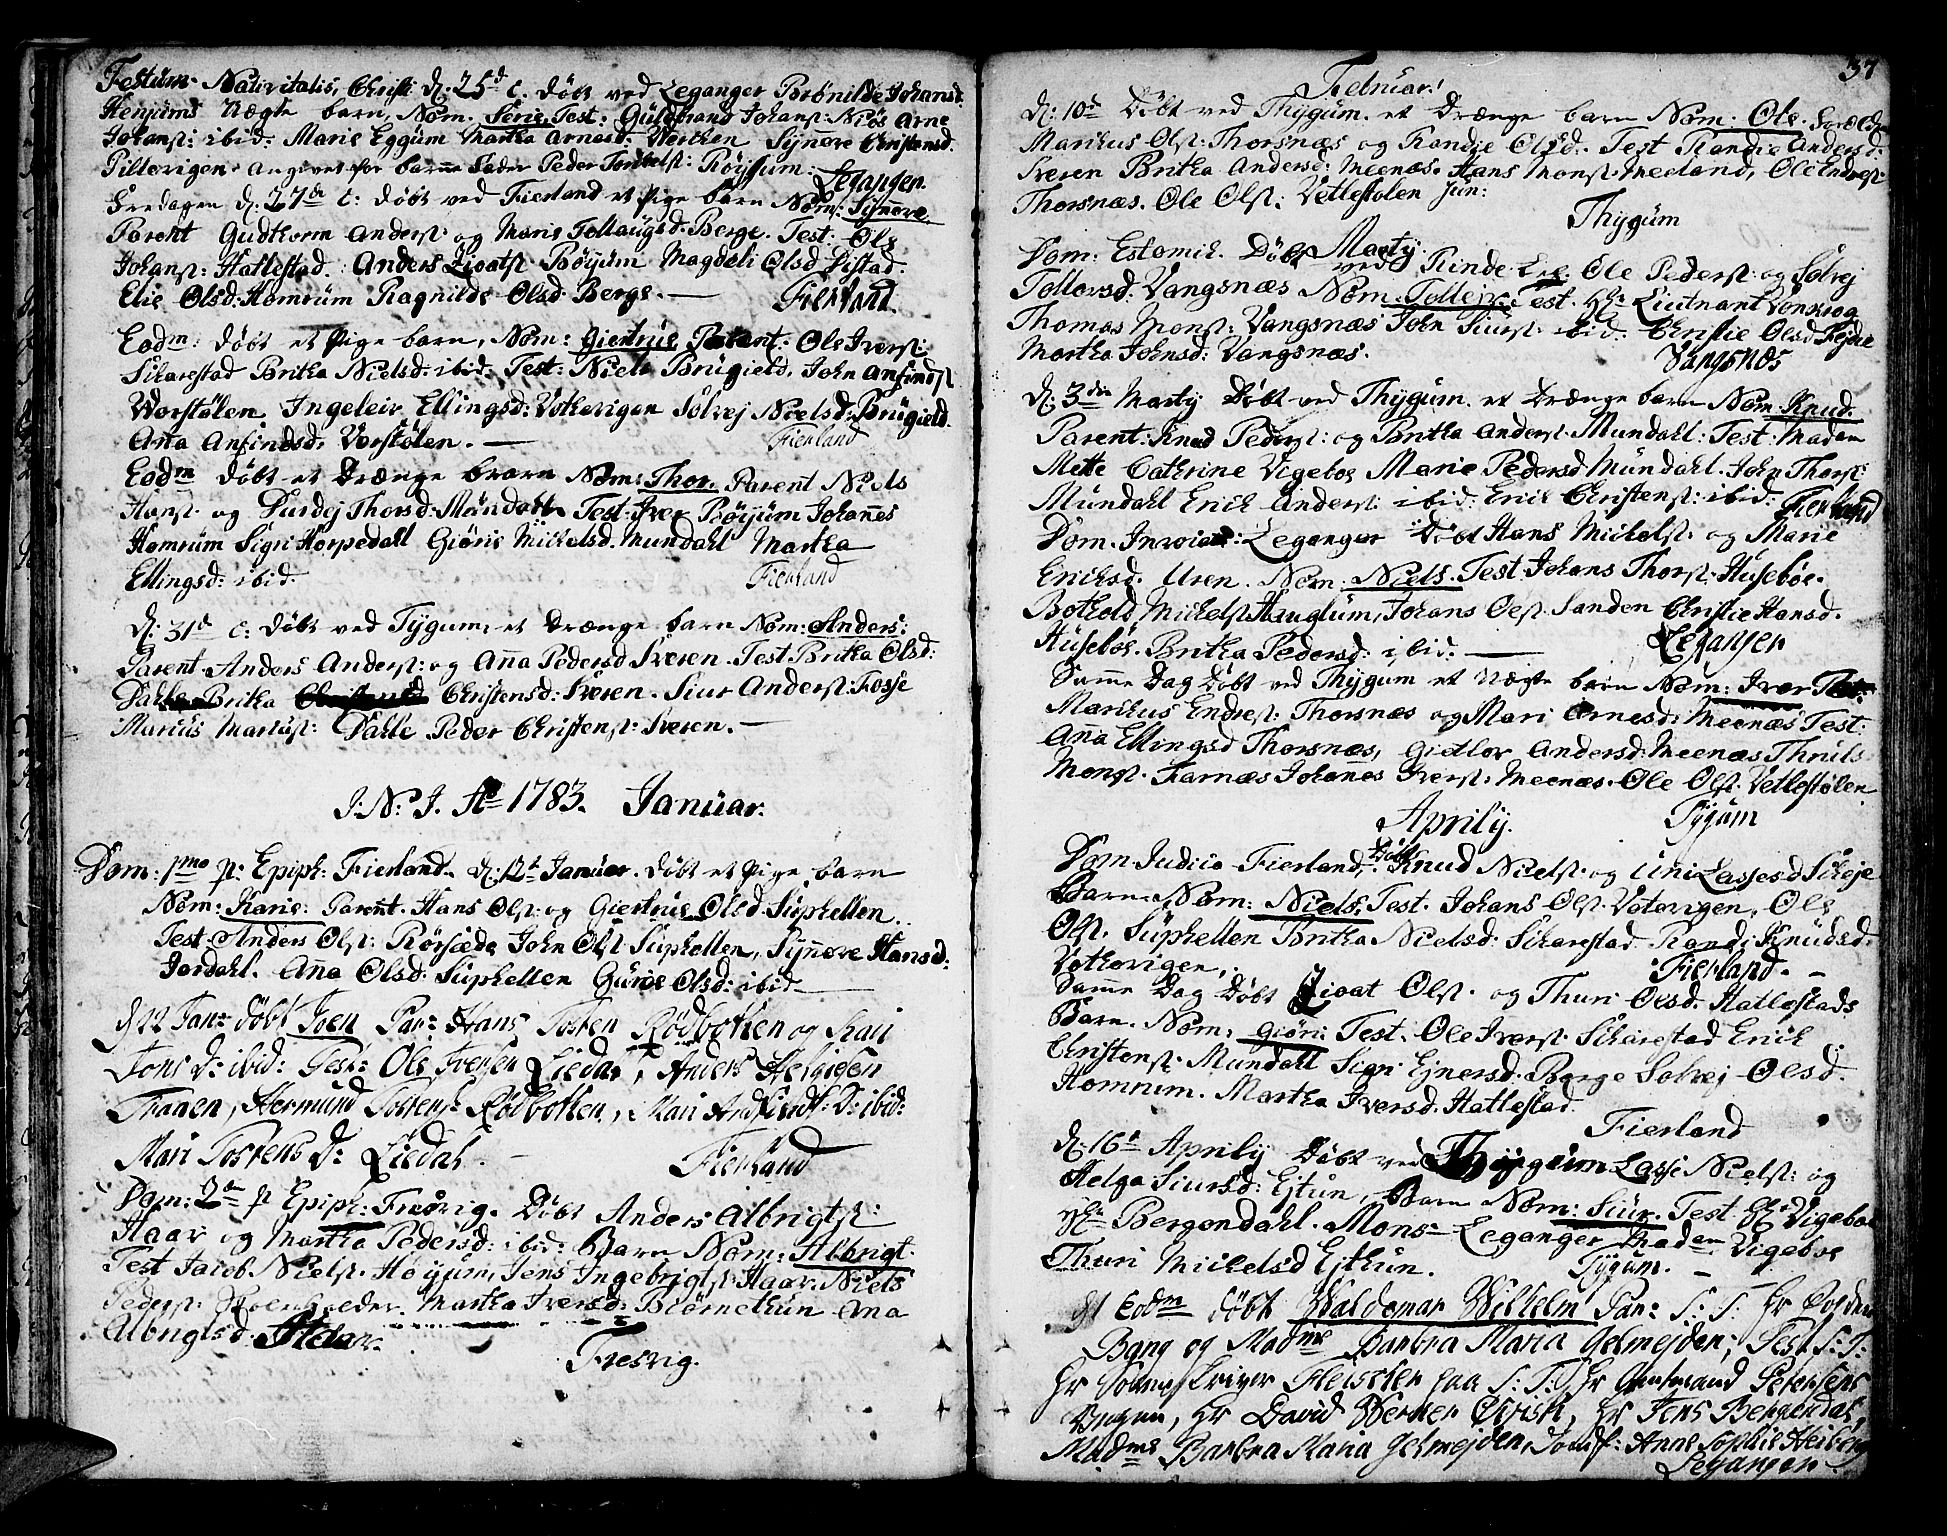 Festum Nativitatis Christi d: 25d t. Döbt ved Leganger Brönilde Johansd:
Henjums Uægte barn, Nom. Serie Test: Guldbrand Johans: Niels Arne
Johanst: ibid: Marie Eggum Martha Arnesd: Synnøve Christensd.
angivet for barne fader Peder Röysum: Leganger.
Fredagen d. 27de t: döbt ved Fierland et Pige barn Nom: Synnøve
Parent Gudthorm Anderst: og Maris Tollaugsd. Berge. Test. Ole
Johanst: Hatlestad. Anders Livatst Böyum Magdeli Olsd Distad.
Elie Olsd: Homrum Ragnilde Olsd Berge. — Fierland.
Eodm: Döbt et Pige barn, Nom: Giertrue Parent: Ole Iverst:
Skarestad Britha Nielsd: ibid: Test: Niels Brugield, John Anfindst
Worstölen Ingeleir Ellingsd: Votkorigen Solvej Nielsd: Brugield.
Ana Anfindsd: Vorstölen. — Fierland
Eodm Döbt et Drænge barn Nom: Thor. Parent Niels
Hanst og Durdej Thorsd. Mundahl Test: Iver Böyum Johannes
Homrum Sigri Horpedahl Giörie Mickelsd. Mundahl Martha
Ellingsd: ibid. Fierland
d: 31d t: Döbt ved Tygum, et Drænge barn Nom: Anders:
Parent Anders Anderst: og Anna Pedersd Sveren. Test Britha Olsd:
Dahle Britha Christensd: Sveren. Siur Anderst: Fosse
Marcus Marcust: Dahle Peder Christenst: Sveren. —
I: N: J. Ao 1783. Januar.
Dom: 1mo p: Epiph: Fierland. d: 12t Januar. Döbt et Pige barn
Nom: Karie: Parent. Hans Olst: og Giertrue Olsd. Suphellen.
Test: Anders Olst: Rörsæde John Olst Suphellen, Synnøve Hansd:
Jordahl. Anna Olsd: Suphellen Gurie Olsd: ibid —
d 22 Jan: döbt Joen Par: Hans Tosten Rödbotten og Kari
Jons D: ibid: Test: Ole Iversen Liedal, Anders
Hermund Tostens: Rödbotten, Mari D: ibid:
Mari Tostens D: Liedal — Fierland
Dom: 2a p Epiph: Fresvig. Döbt Anders Albrigtst:
Haar og Martha Pedersd: ibid: Barn Nom: Albrigt.
Test Jacob Nielst. Höyum, Jens Ingebrigtst Haar: Niels
Pederst: Martha Iversd: Biörnethun Ana
Albrigtsd. Haar.
Fresvig.
37
Februar:
d: 10d Döbt ved Thygum. et Drænge barn Nom: Ole. Foræld:
Marthus Olst: Thorsnæs og Randie Olsd: Test Randie Andersd:
Sveren Britha Andersd: Meenæs. Hans Monst Meeland, Ole Endrest
Thorsnæs. Ole Olst: Vetlestolen Jun:
Thygum
Marty
Dom: Estomih. Döbt ved Rinde Ole Pederst og Solvej
Tollevsd: Vangsnæs Nom: Tollejv. Test. Hr. Liutnant Vonkrog
Thomas Monst: Vangsnæs John Siurst: ibid: Christie Olsd Fejde
Martha Johnsd: Vangsnæs. Vangsnæs
d: 3die Marty Döbt ved Thygum. et Drænge barn Nom: Knud.
Parent: Knud Pederst: og Britha Anderst. Mundahl: Test: Madam
Mette Cathrine Vigeboe Marie Pedersd Mundahl. John Thorst:
Mundahl Erich Anderst: ibid: Erik Christenst: ibid. Fierland
Dom. Invoiav: Leganger Döbt Hans Mickelst: og Marie
Ericksd. Uren. Nom: Niels. Test: Johans Thorst. Huseböe.
Bothold Mickelst Hauglum, Johans Olst. Sanden Christie Hansd.
Huseböe. Britha Pedersd: ibid: — Leganger
Samme Dag Döbt ved Thygum et Uægte barn Nom: Iver
Marthus Endrest: Thorsnæs og Mari Arnesd: Meenæs Test:
Anna Ellingsd Thorsnæs, Gietlov Andersd: Meenæs Thruls
Monst: Farnæs Johannes Iverst: Meenæs. Ole Olst: Vetlestölen
Tygum
Aprily.
Dom. Judica Fierland, Döbt Knud Nielst: og Uni Lassesd Skeje
Barn: Nom: Niels. Test. Johans Olst Votevigen, Ole
Olst. Suphellen Britha Nielsd: Skarestad. Randi Knudsd.
Votkevigen. Fierland. —
Samme Dag Döbt Livat Olst. og Thuri Olsd. Hatlestads
Barn. Nom: Giöri: Test: Ole Iverst: Skarestad Erich
Christenst: Mundahl Sigri Ejnersd: Berge Solvej Olsd.
Homrum. Martha Iversd. Hatlestad.
Fierland
d: 16d Aprily Döbt ved Thygum Lasse Nielst: og
Helga Siursd: Ejtun, Barn Nom: Siur. Test Hr Vigeboe
Hr Bergendahl. Mons Leganger Madam Vigeboe
Thuri Mickelsd Ejthun. Tygum. —
d Eodm döbt Waldemar Wilhelm Par: S: T. Hr
Bang og Madme Barbra Maria Gelmejden; Test. S: T:
Hr Sorenskriver Fleischer paa S: T: Hr Amtmand Petersens
Hr David Werner Hr Jens Bergendal,
Madme Barbra Maria Gelmejden, Jomf: Anne Sophie Heiberg
Leganger.